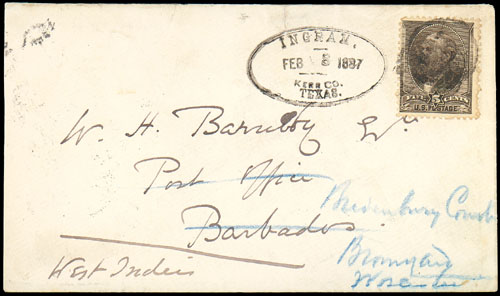 INGRAM.
FEB 8 1887
KERR CO.
TEXAS.
FIVE 5 CENTS
U.S. POSTAGE
W. H. Barneby
Post Office
Barbados
West Indies
Bredenbury Court
Bromyard
Worcester